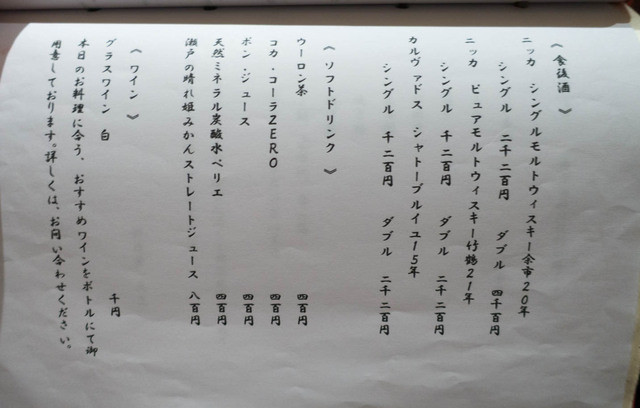 《 食後酒 》
ニッカ シングルモルトウィスキー余市20年
シングル 二千二百円 ダブル 四千百円
ニッカ ピュアモルトウィスキー竹鶴21年
シングル 千二百円 ダブル 二千二百円
カルヴァドス シャトーブルイユ15年
シングル 千二百円 ダブル 二千二百円
《 ソフトドリンク 》
ウーロン茶 四百円
コカ・コーラZERO 四百円
ポン・ジュース 四百円
天然ミネラル炭酸水ペリエ 四百円
瀬戸の晴れ姫みかんストレートジュース 八百円
《 ワイン 》
グラスワイン 白 千円
本日のお料理に合う、おすすめワインをボトルにて御
用意しております。詳しくは、お問い合わせください。